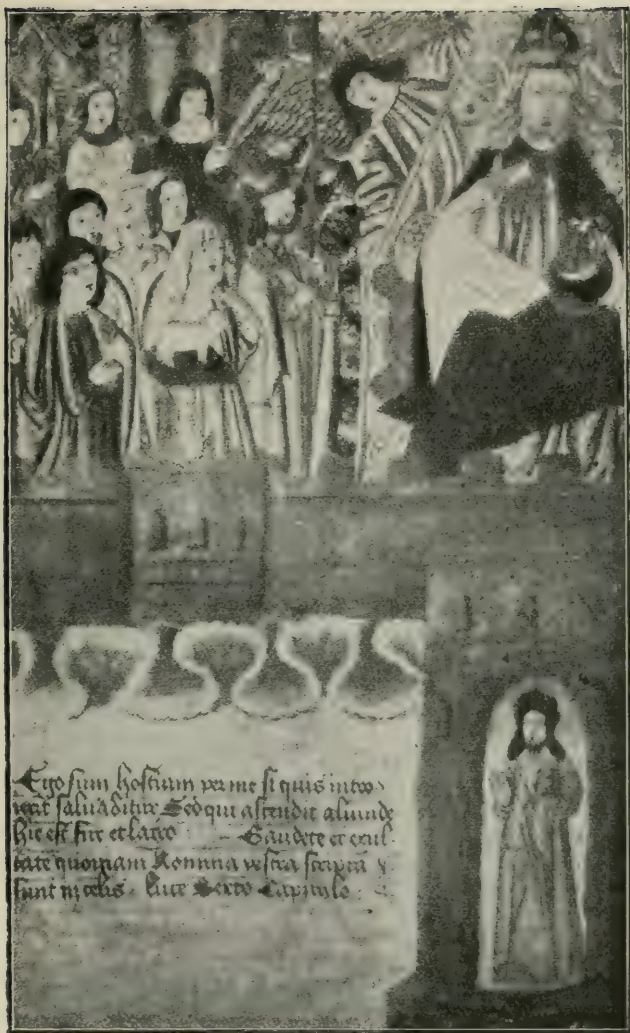 Ego sum hostium per me si quis intro
ierit saluabitur Sed qui ascendit aliunde
hic est fur et latro Gaudete et exul
tate quoniam Nomina vestra scripta
sunt in celis Luce Sexto Capitulo